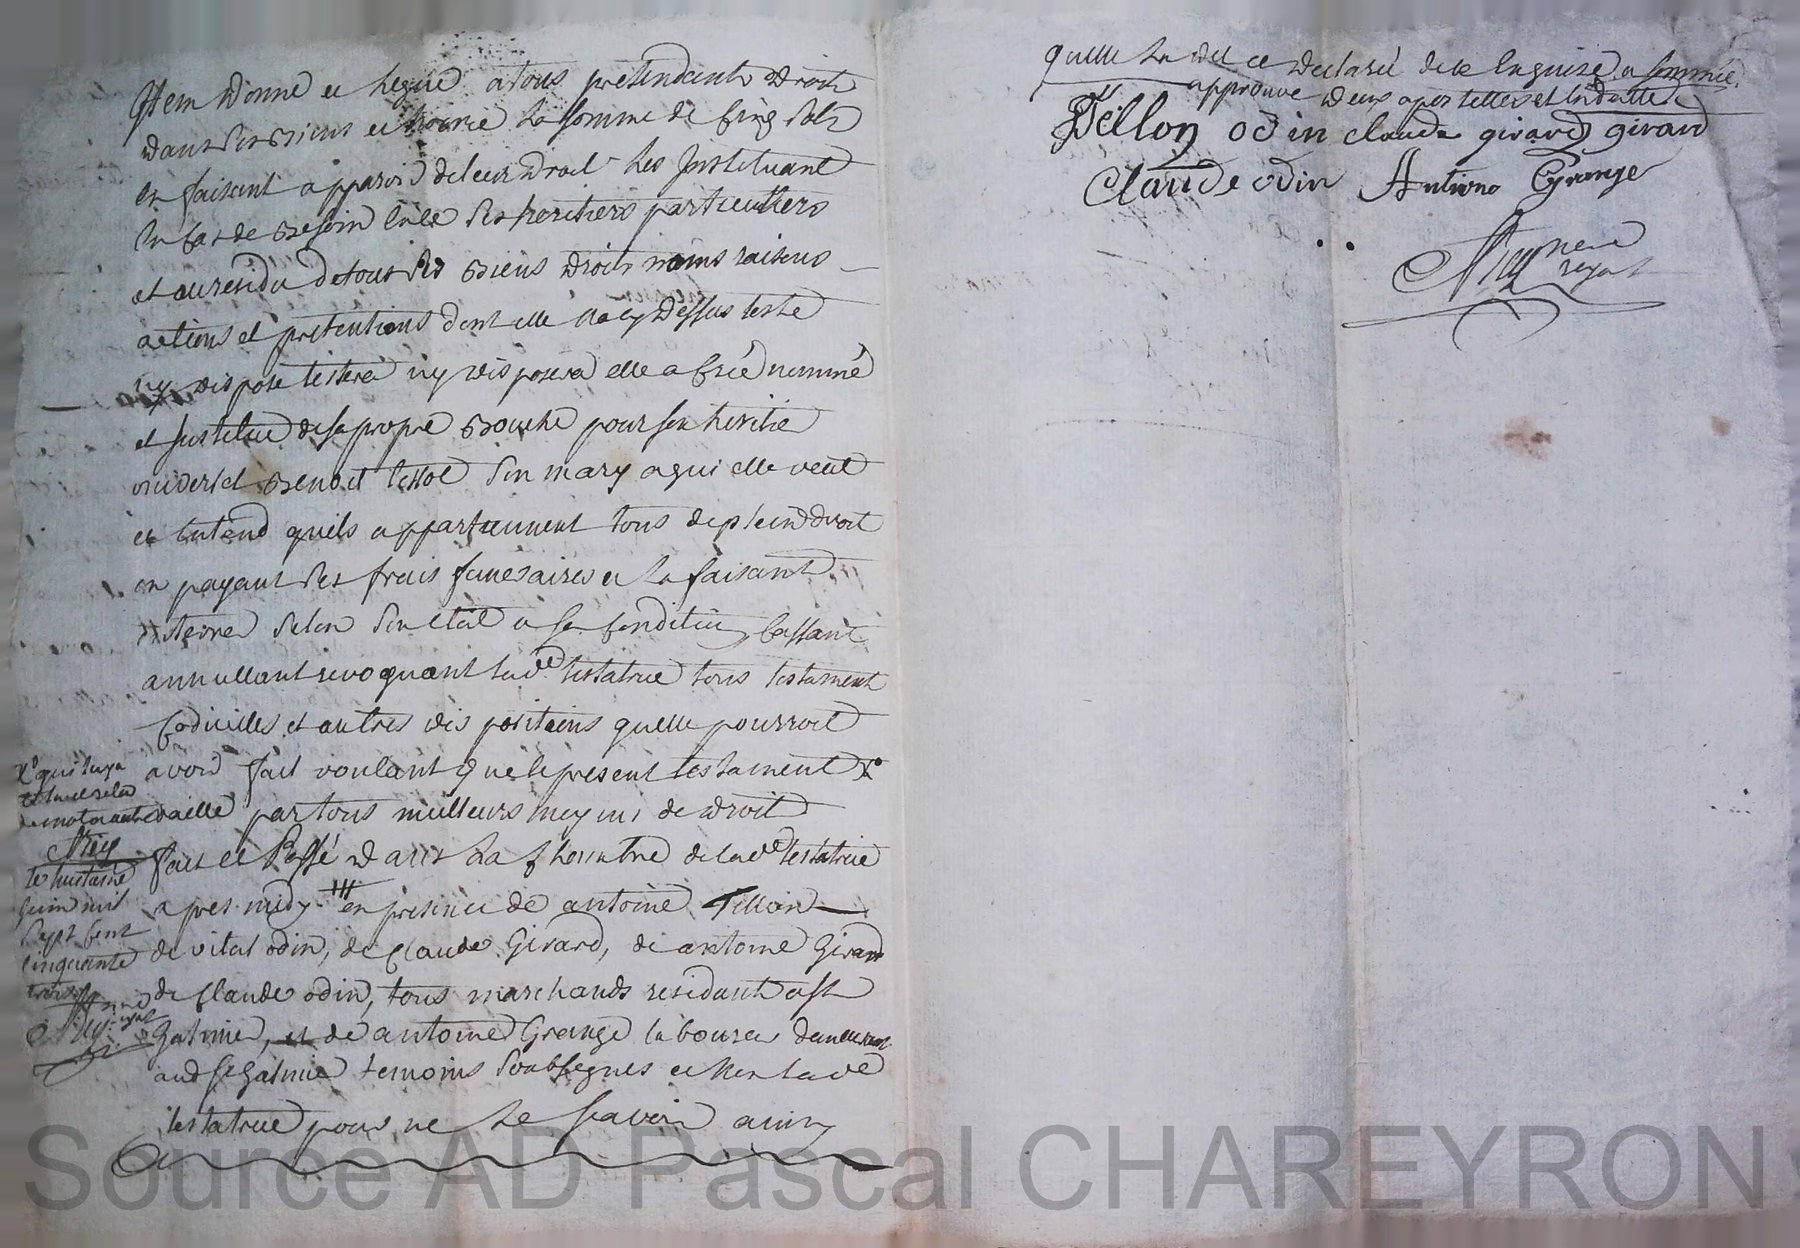 Item donne et legue a tous pretendants droit
dans ses biens et hoirie la somme de cinq sols
en faisant apparoir de leur droit les instituant
en cas de besoin ses heritiers particulliers
et au residu de tous ses biens droits noms raisons
actions et pretentions dont elle na cy dessus testé
ny disposé testera ny disposera elle a créé nommé
et institué de sa propre bouche pour son heritier
universel benoit son mary a qui elle veut
et entend quils appartiennent tous de plein droit
en payant ses frais funeraires et la faisant
selon son etat et sa condition cassant
annullant revoquant lad.e testatrice tous testament
codicilles et autres dispositions quelle pourroit
avoir fait voulant que le present testament
vaille par tous meilleurs moyens de droit
fait et passé dans la chambre de lad.e testatrice
apres midy en presence de antoine Tillon
de vital odin, de claude Girard, de antoine Girard
de claude odin, tous marchands residant a St
Galmier, et de antoine Grange laboureur demeurant
aud St Galmier temoins soubsignes et non lad.e
testatrice pour ne le scavoir ainsy
le huitaine
juin mil
sept cent
cinquante
trois
quelle la dit et declaré de ce enquise et sommée
approuve deux apostilles et la datte
Tillon odin claude girard girard
Claude odin Antoine Grange
Source AD Pascal CHAREYRON